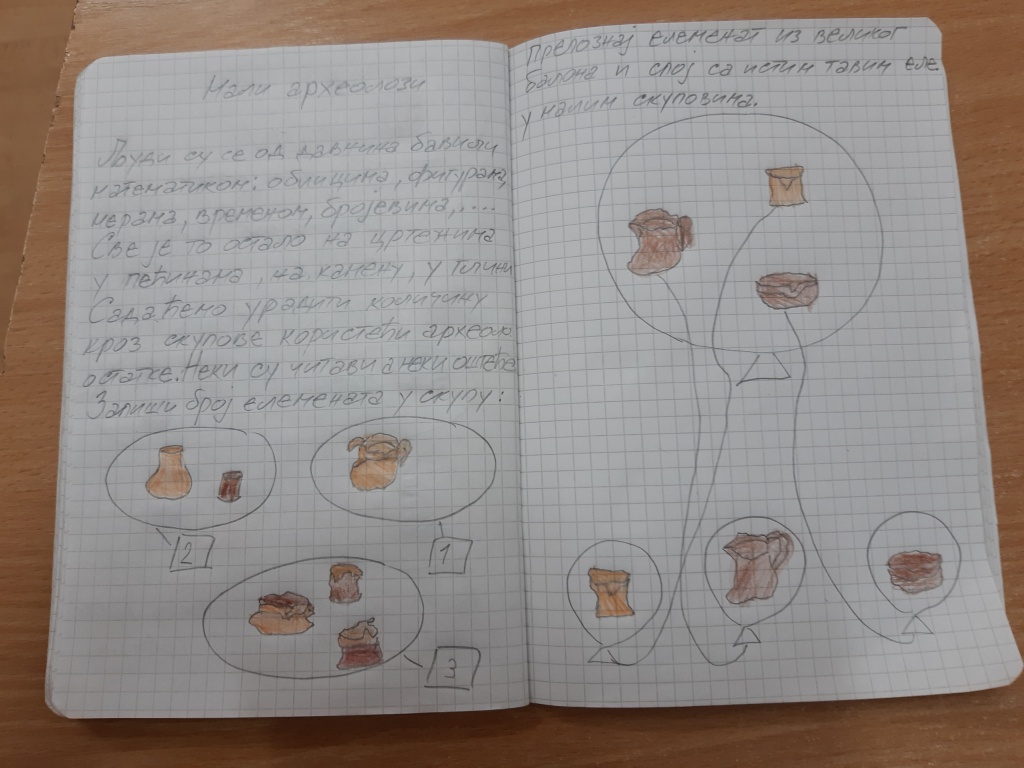 Мали археолози
Људи су се од давнина бавили
математиком: облицима, фигурама,
мерама, временом, бројевима,...
Све је то остало на цртежима
у пећинама, на камену, у глини
Сада ћемо урадити количину
кроз скупове користећи археоло
остатке. Неки су читави а неки оштеће
Запиши број елемената у скупу:
2
1
3
Препознај елеменат из великог
балона и спој са истим таквим еле
у малим скуповима.